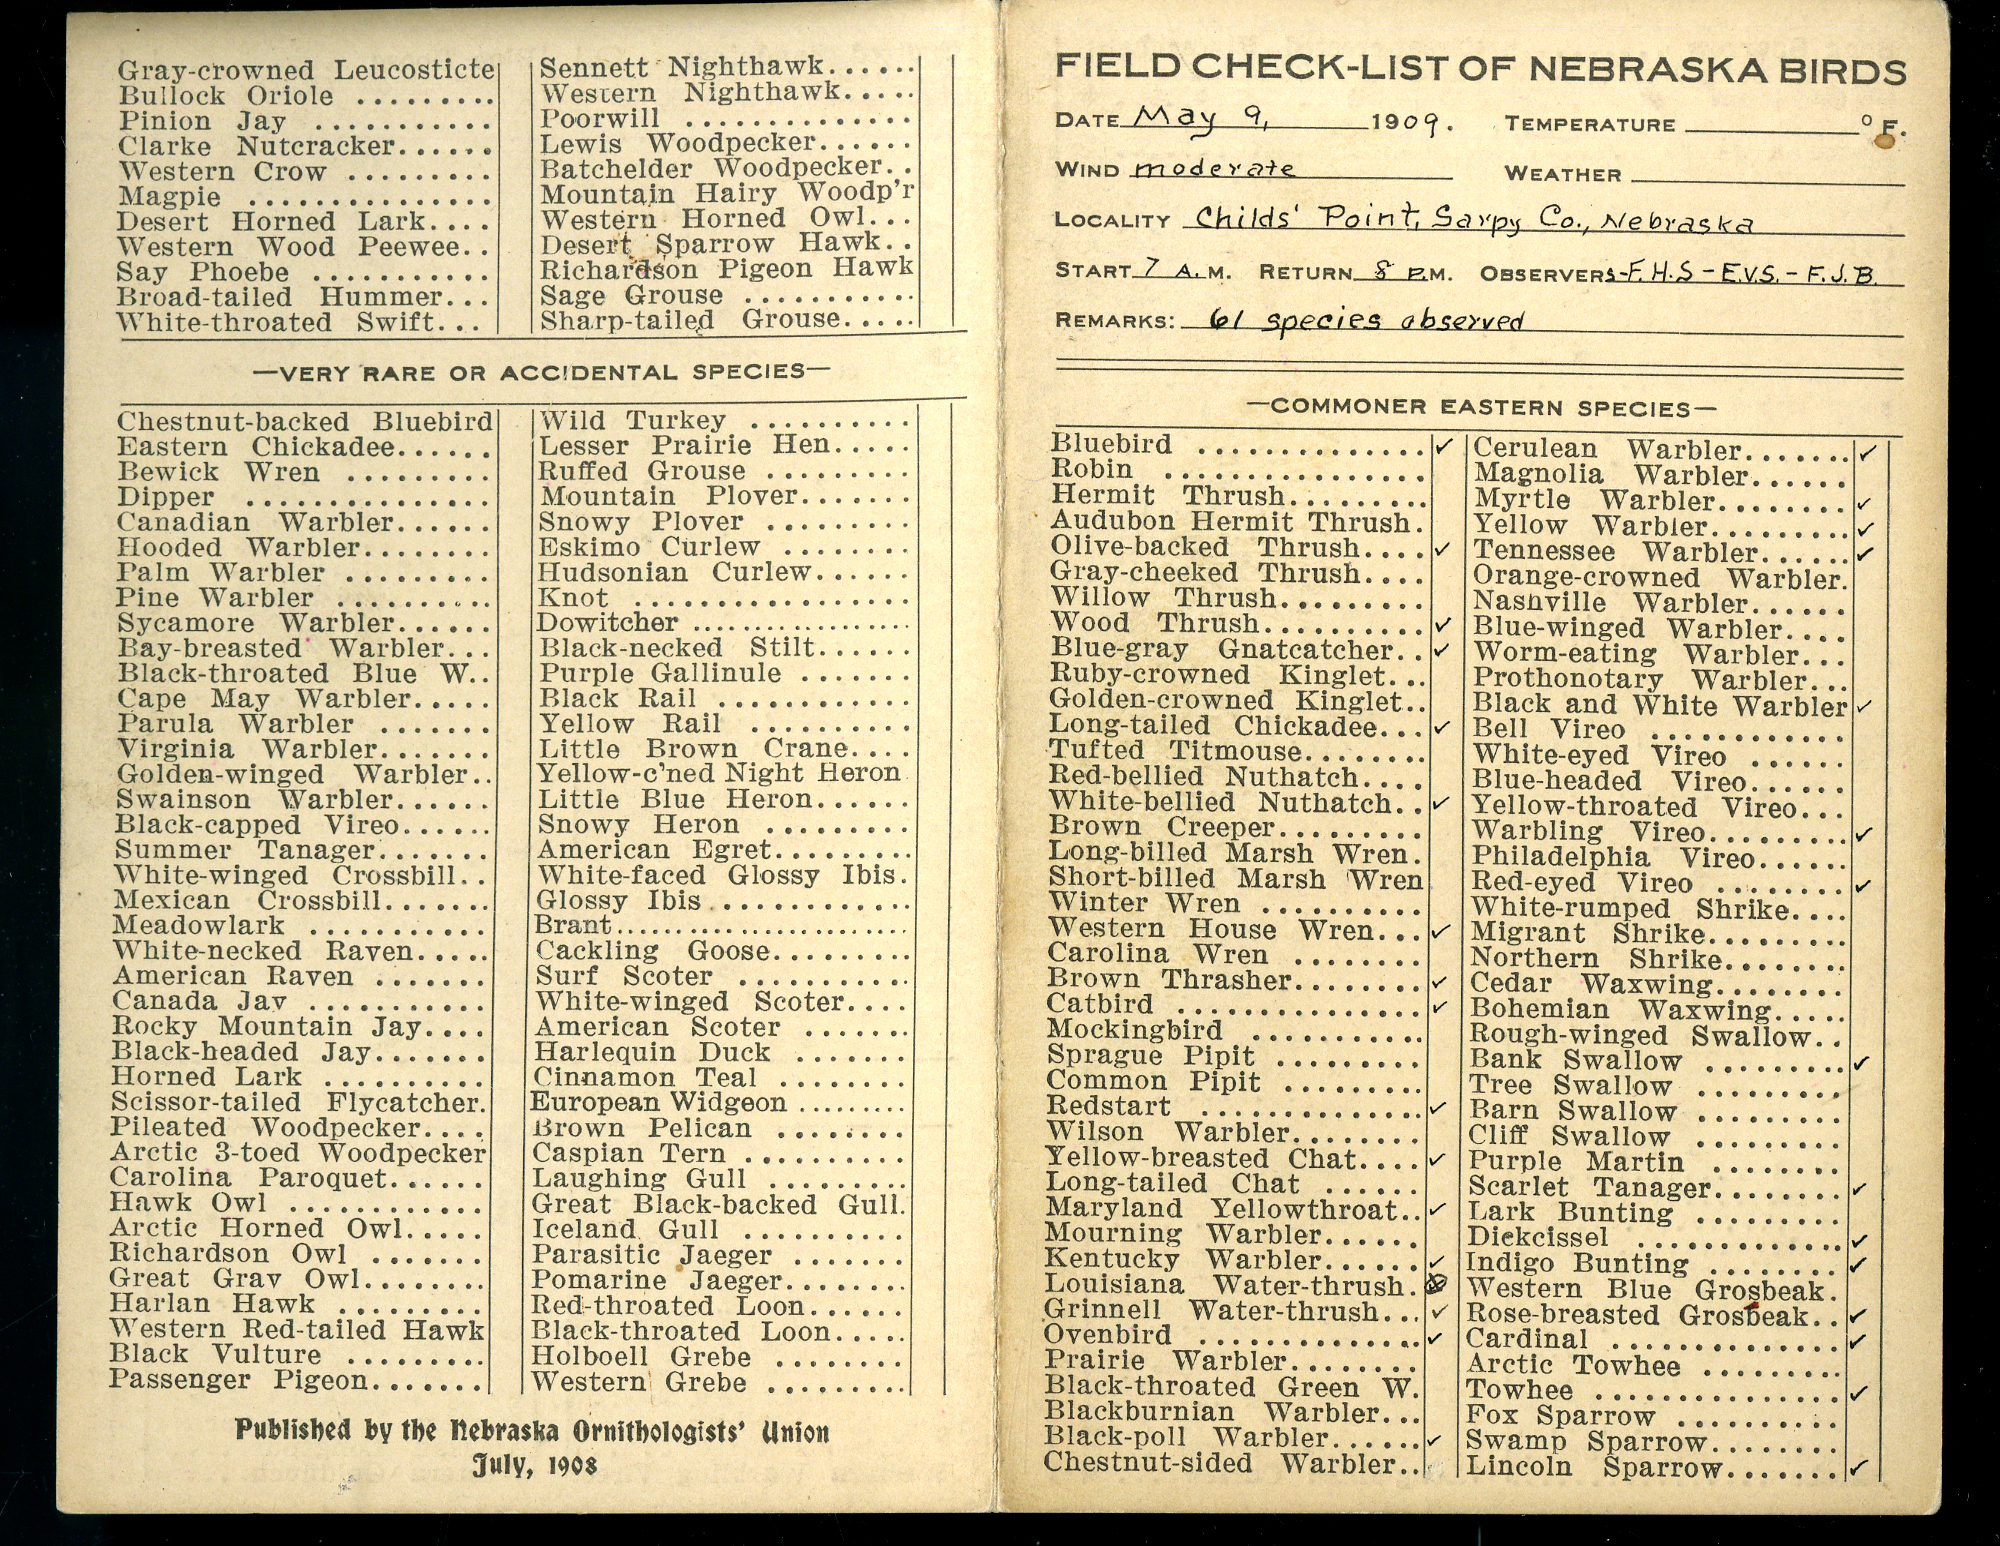 Gray-crowned Leucosticte
Bullock Oriole .........
Pinion Jay ...........
Clarke Nutcracker......
Western Crow .........
Magpie ...............
Desert Horned Lark....
Western Wood Peewee..
Say Phoebe ...........
Broad-tailed Hummer...
White-throated Swift...
Sennett Nighthawk......
Western Nighthawk.....
Poorwill ..............
Lewis Woodpecker......
Batchelder Woodpecker..
Mountain Hairy Woodp'r
Western Horned Owl...
Desert Sparrow Hawk..
Richardson Pigeon Hawk
Sage Grouse ...........
Sharp-tailed Grouse.....
—VERY RARE OR ACCIDENTAL SPECIES—
Chestnut-backed Bluebird
Eastern Chickadee......
Bewick Wren .........
Dipper ...............
Canadian Warbler......
Hooded Warbler........
Palm Warbler .........
Pine Warbler ..........
Sycamore Warbler......
Bay-breasted Warbler...
Black-throated Blue W..
Cape May Warbler.....
Parula Warbler .......
Virginia Warbler.......
Golden-winged Warbler..
Swainson Warbler......
Black-capped Vireo......
Summer Tanager.......
White-winged Crossbill..
Mexican Crossbill.......
Meadowlark ...........
White-necked Raven.....
American Raven .......
Canada Jay ...........
Rocky Mountain Jay....
Black-headed Jay.......
Horned Lark ..........
Scissor-tailed Flycatcher.
Pileated Woodpecker....
Arctic 3-toed Woodpecker
Carolina Paroquet......
Hawk Owl ............
Arctic Horned Owl.....
Richardson Owl .......
Great Gray Owl........
Harlan Hawk .........
Western Red-tailed Hawk
Black Vulture .........
Passenger Pigeon.......
Wild Turkey ..........
Lesser Prairie Hen.....
Ruffed Grouse .........
Mountain Plover.......
Snowy Plover .........
Eskimo Curlew ........
Hudsonian Curlew......
Knot .................
Dowitcher ....................
Black-necked Stilt......
Purple Gallinule .......
Black Rail ............
Yellow Rail ..........
Little Brown Crane....
Yellow-c'ned Night Heron
Little Blue Heron......
Snowy Heron .........
American Egret.........
White-faced Glossy Ibis.
Glossy Ibis ............
Brant...........................
Cackling Goose.........
Surf Scoter ...........
White-winged Scoter....
American Scoter .......
Harlequin Duck .......
Cinnamon Teal ........
European Widgeon .........
Brown Pelican ........
Caspian Tern ..........
Laughing Gull .........
Great Black-backed Gull.
Iceland Gull ..........
Parasitic Jaeger ........
Pomarine Jaeger.......
Red-throated Loon......
Black-throated Loon.....
Holboell Grebe ........
Western Grebe .........
Published by the Nebraska Ornithologists' Union
July, 1908
FIELD CHECK-LIST OF NEBRASKA BIRDS
DATE May 9, 1909. TEMPERATURE ° F.
WIND moderate WEATHER
LOCALITY Childs' Point, Sarpy Co., Nebraska
START 7 A.M. RETURN 8 P.M. OBSERVERS-F.H.S - E.V.S. - F.J.B.
REMARKS: 61 species observed
—COMMONER EASTERN SPECIES—
Bluebird .............. ✓
Robin ................
Hermit Thrush..........
Audubon Hermit Thrush.
Olive-backed Thrush.... ✓
Gray-cheeked Thrush....
Willow Thrush.........
Wood Thrush.......... ✓
Blue-gray Gnatcatcher.. ✓
Ruby-crowned Kinglet...
Golden-crowned Kinglet..
Long-tailed Chickadee... ✓
Tufted Titmouse........
Red-bellied Nuthatch....
White-bellied Nuthatch.. ✓
Brown Creeper.........
Long-billed Marsh Wren.
Short-billed Marsh Wren
Winter Wren ..........
Western House Wren... ✓
Carolina Wren ........
Brown Thrasher........ ✓
Catbird ............... ✓
Mockingbird ...........
Sprague Pipit .........
Common Pipit .........
Redstart .............. ✓
Wilson Warbler........
Yellow-breasted Chat.... ✓
Long-tailed Chat ......
Maryland Yellowthroat.. ✓
Mourning Warbler......
Kentucky Warbler...... ✓
Louisiana Water-thrush. ✓
Grinnell Water-thrush... ✓
Ovenbird .............. ✓
Prairie Warbler........
Black-throated Green W.
Blackburnian Warbler...
Black-poll Warbler...... ✓
Chestnut-sided Warbler..
Cerulean Warbler....... ✓
Magnolia Warbler......
Myrtle Warbler........ ✓
Yellow Warbler......... ✓
Tennessee Warbler...... ✓
Orange-crowned Warbler.
Nashville Warbler......
Blue-winged Warbler....
Worm-eating Warbler...
Prothonotary Warbler...
Black and White Warbler ✓
Bell Vireo ............
White-eyed Vireo ......
Blue-headed Vireo......
Yellow-throated Vireo...
Warbling Vireo......... ✓
Philadelphia Vireo......
Red-eyed Vireo ........ ✓
White-rumped Shrike....
Migrant Shrike.........
Northern Shrike........
Cedar Waxwing........
Bohemian Waxwing.....
Rough-winged Swallow..
Bank Swallow ......... ✓
Tree Swallow .........
Barn Swallow .........
Cliff Swallow .........
Purple Martin ........
Scarlet Tanager........ ✓
Lark Bunting .........
Dickcissel ............. ✓
Indigo Bunting ........ ✓
Western Blue Grosbeak.
Rose-breasted Grosbeak.. ✓
Cardinal .............. ✓
Arctic Towhee .........
Towhee ............... ✓
Fox Sparrow ..........
Swamp Sparrow........
Lincoln Sparrow....... ✓